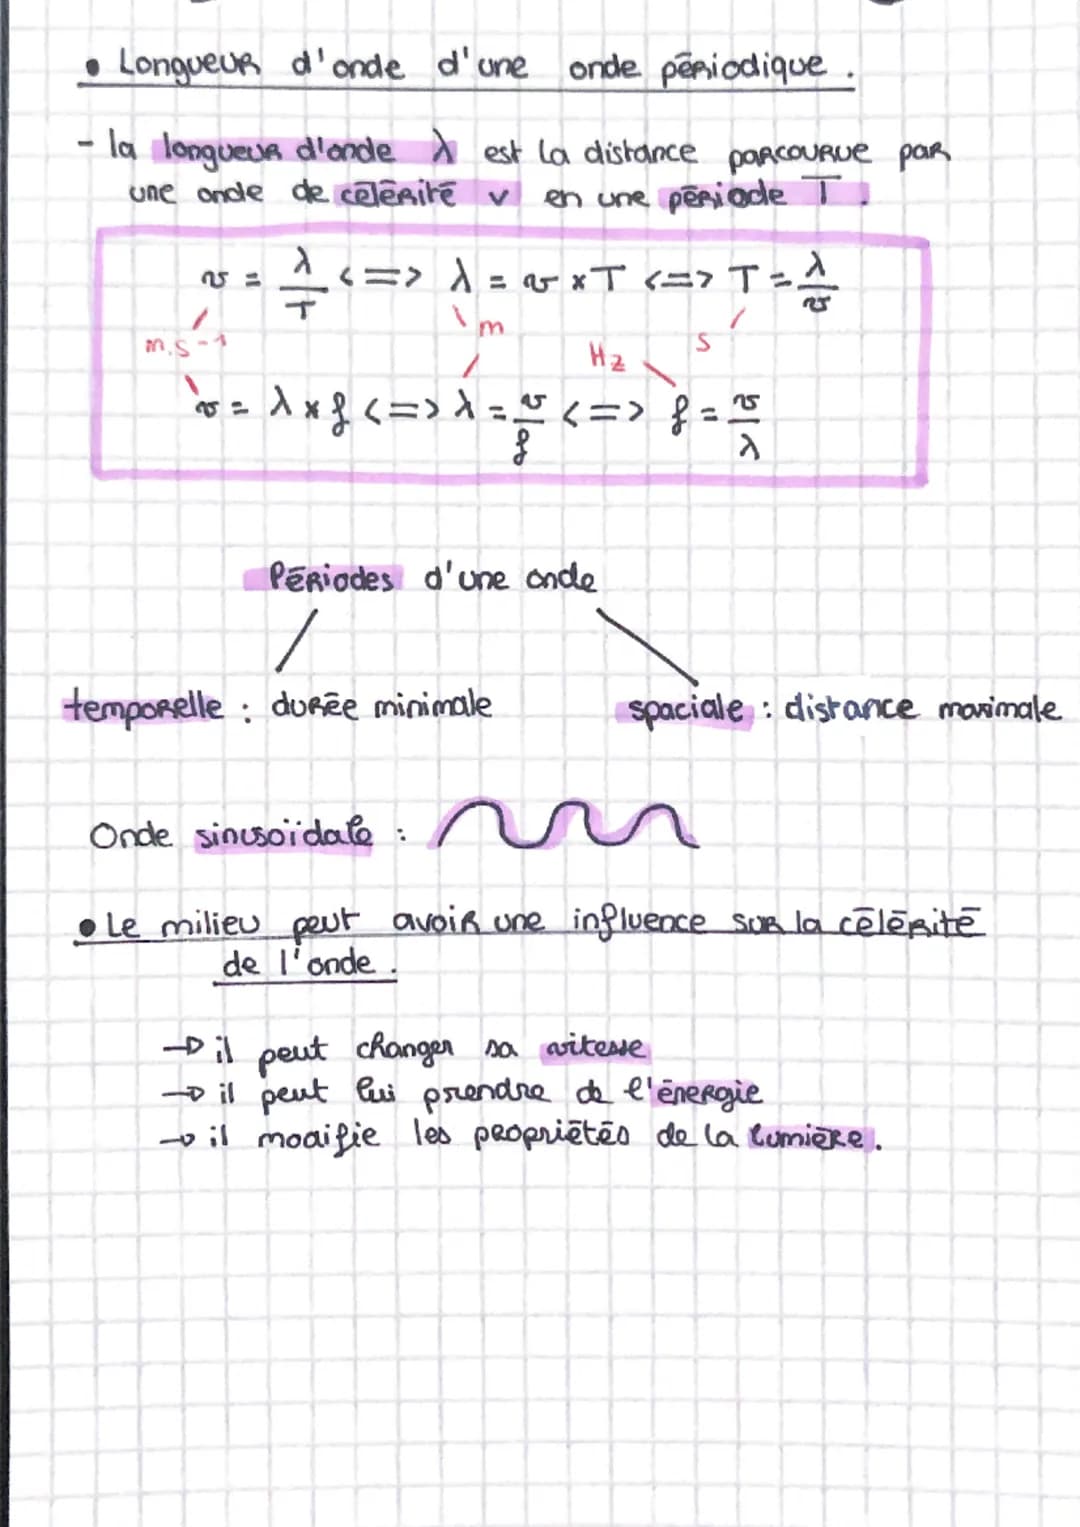 • Longueur d'onde d'une onde périodique.
- la longueur d'onde λ est la distance parcourue par
une onde de célérité v en une période T.
v = λ/T <=> λ = v x T <=> T = λ/v
m.s-1 m Hz s
v = λ x f <=> λ = v/f <=> f = v/λ
Périodes d'une onde
temporelle : durée minimale spaciale : distance maximale
Onde sinusoïdale :
• Le milieu peut avoir une influence sur la célérité
de l'onde.
→ il peut changer sa vitesse
→ il peut lui prendre de l'énergie
→ il modifie les propriétés de la lumière.